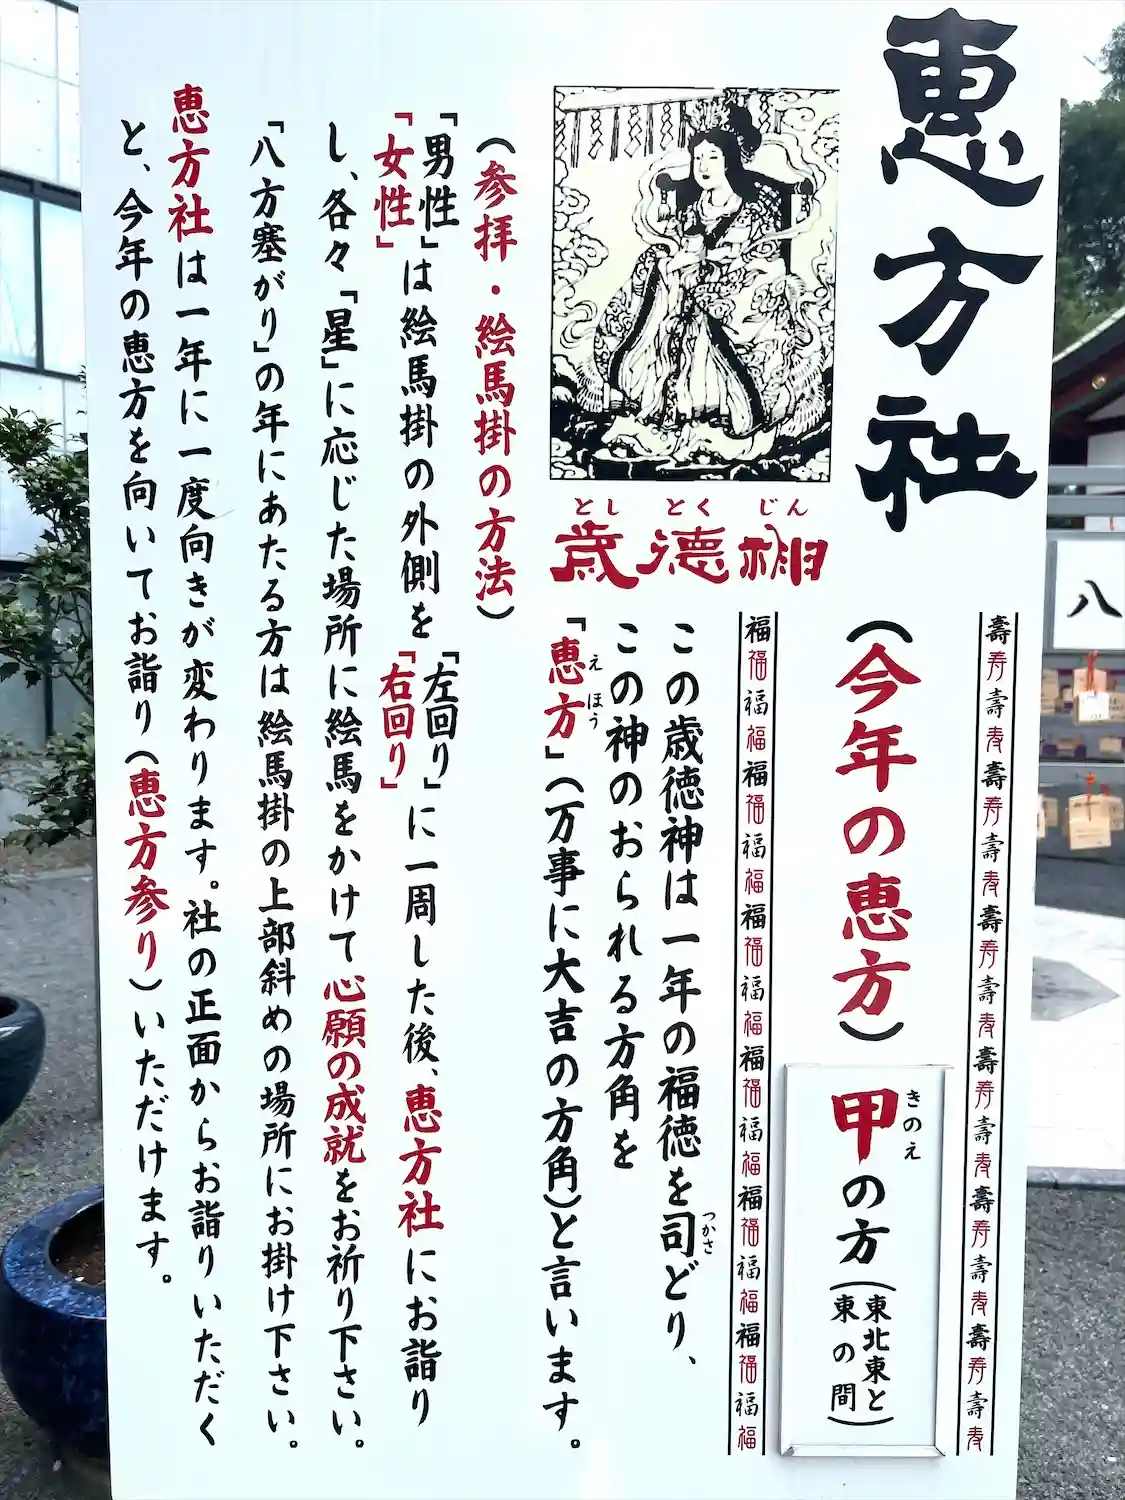 恵方社
(今年の恵方)
きのえ
甲の方(東北東と
東の間)
壽寿壽寿壽寿壽寿壽寿壽寿壽寿壽寿壽寿壽寿壽寿壽寿
福福福福福福福福福福福福福福福福福福福福福福福福
とし とく じん
歳徳神
この歳徳神は一年の福徳を司どり、
つかさ
この神のおられる方角を
「恵方」(万事に大吉の方角)と言います。
えほう
(参拝・絵馬掛の方法)
「男性」
「女性」は絵馬掛の外側を「左回り」
「右回り」に一周した後、恵方社にお詣り
し、各々「星」に応じた場所に絵馬をかけて心願の成就をお祈り下さい。
「八方塞がり」の年にあたる方は絵馬掛の上部斜めの場所にお掛け下さい。
恵方社は一年に一度向きが変わります。社の正面からお詣りいただく
と、今年の恵方を向いてお詣り(恵方参り)いただけます。
八